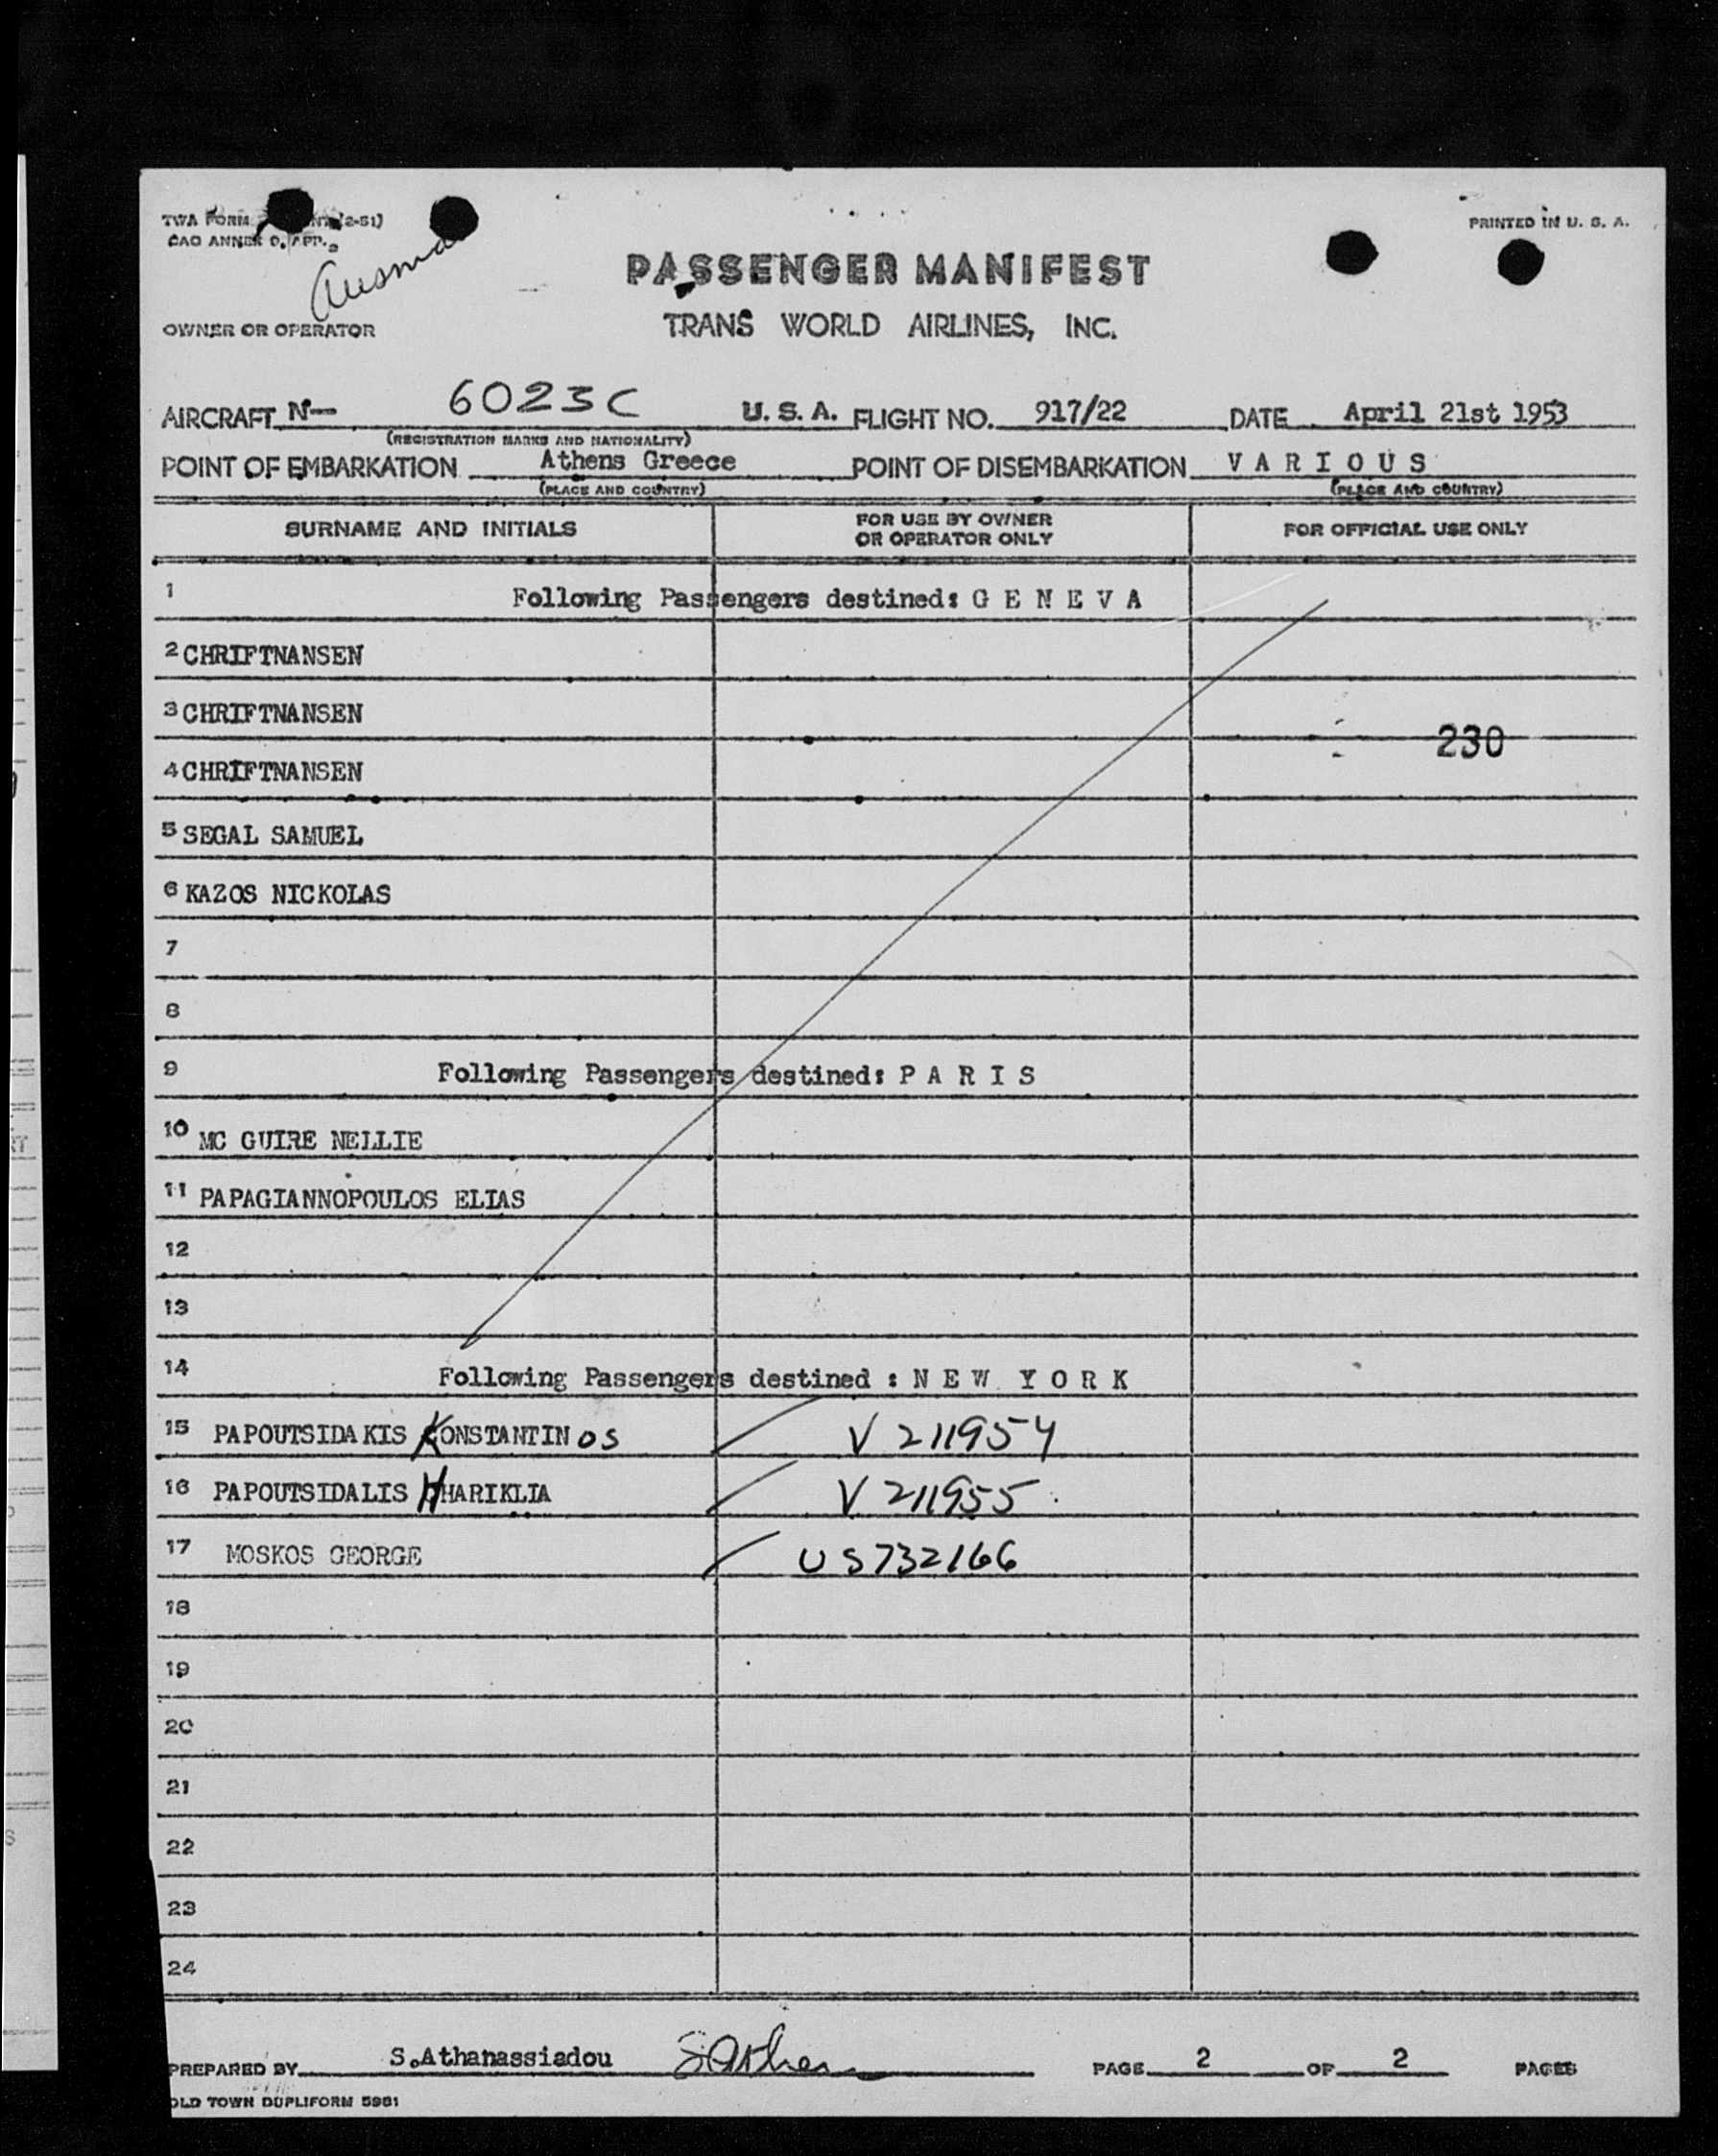 TWA FORM (2-51)
CAO ANNEX 9, APP.
PRINTED IN U. S. A.
PASSENGER MANIFEST
OWNER OR OPERATOR
TRANS WORLD AIRLINES, INC.
AIRCRAFT N— 6023C U. S. A. FLIGHT NO. 917/22 DATE April 21st 1953
(REGISTRATION MARKS AND NATIONALITY)
POINT OF EMBARKATION Athens Greece POINT OF DISEMBARKATION V A R I O U S
(PLACE AND COUNTRY) (PLACE AND COUNTRY)
SURNAME AND INITIALS FOR USE BY OWNER OR OPERATOR ONLY FOR OFFICIAL USE ONLY
1 Following Passengers destined: G E N E V A
2 CHRIFTNANSEN
3 CHRIFTNANSEN
230
4 CHRIFTNANSEN
5 SEGAL SAMUEL
6 KAZOS NICKOLAS
7
8
9 Following Passengers destined: P A R I S
10 MC GUIRE NELLIE
11 PAPAGIANNOPOULOS ELIAS
12
13
14 Following Passengers destined : N E W Y O R K
15 PAPOUTSIDAKIS KONSTANTINOS V 211954
16 PAPOUTSIDALIS HHARIKLIA V 211955
17 MOSKOS GEORGE US732166
18
19
20
21
22
23
24
PREPARED BY S.Athanassiadou PAGE 2 OF 2 PAGES
OLD TOWN DUPLIFORM 5981